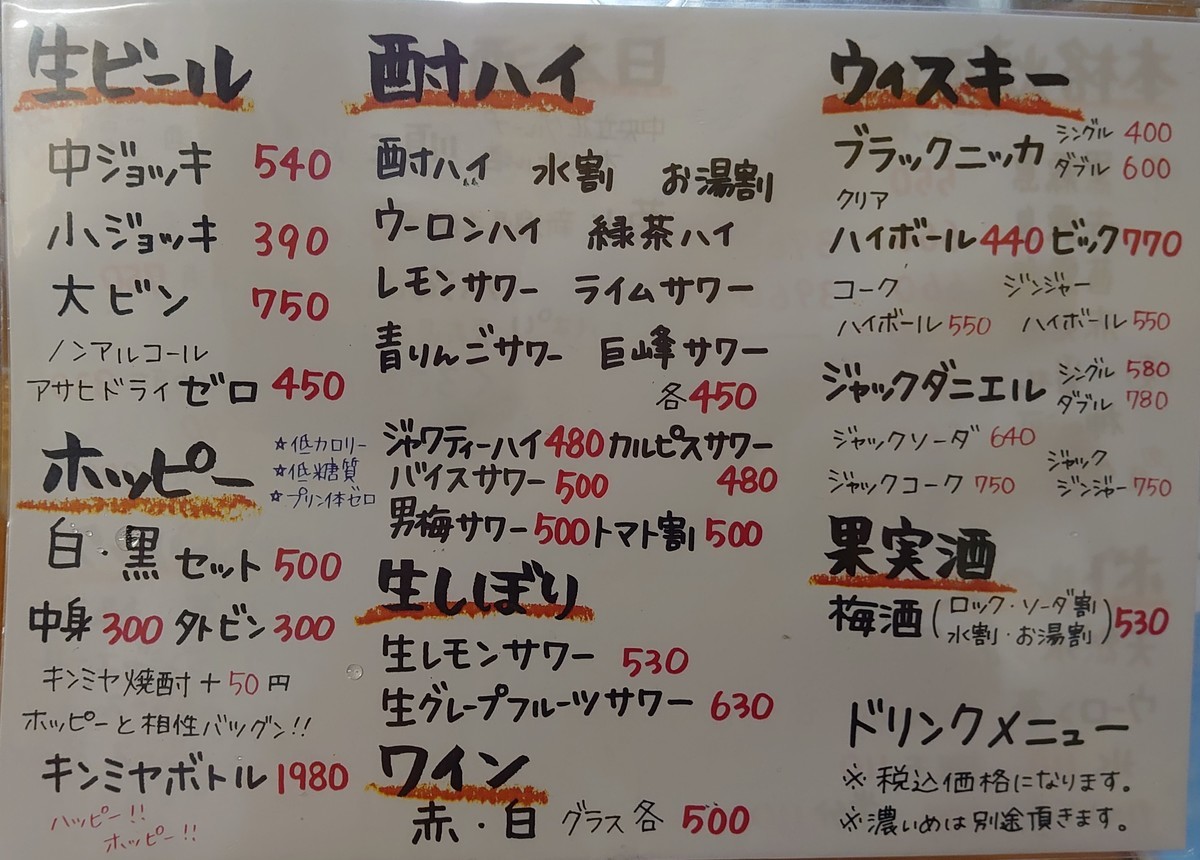 生ビール
中ジョッキ 540
小ジョッキ 390
大ビン 750
ノンアルコール
アサヒドライゼロ 450
ホッピー
☆低カロリー
☆低糖質
☆プリン体ゼロ
白・黒 セット 500
中身 300 外ビン 300
キンミヤ焼酎+50円
ホッピーと相性バツグン!!
キンミヤボトル 1980
ハッピー!!
ホッピー!!
酎ハイ
酎ハイ 水割 お湯割
ウーロンハイ 緑茶ハイ
レモンサワー ライムサワー
青りんごサワー 巨峰サワー
各450
ジャワティーハイ 480 カルピスサワー
バイスサワー 500 480
男梅サワー 500 トマト割 500
生しぼり
生レモンサワー 530
生グレープフルーツサワー 630
ワイン
赤・白 グラス各 500
ウィスキー
ブラックニッカ シングル 400
ダブル 600
クリア
ハイボール 440 ビック 770
コーク ジンジャー
ハイボール 550 ハイボール 550
ジャックダニエル シングル 580
ダブル 780
ジャックソーダ 640
ジャック
ジャックコーク 750 ジンジャー 750
果実酒
梅酒(ロック・ソーダ割
水割・お湯割)530
ドリンクメニュー
※税込価格になります。
※濃いめは別途頂きます。